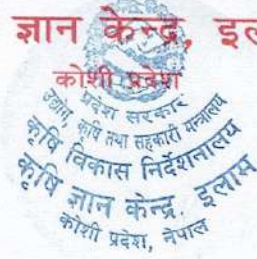 ज्ञान केन्द्र, इल
कोशी प्रदेश
प्रदेश सरकार
उद्योग, कृषि तथा सहकारी मन्त्रालय
कृषि विकास निर्देशनालय
कृषि ज्ञान केन्द्र, इलाम
कोशी प्रदेश, नेपाल